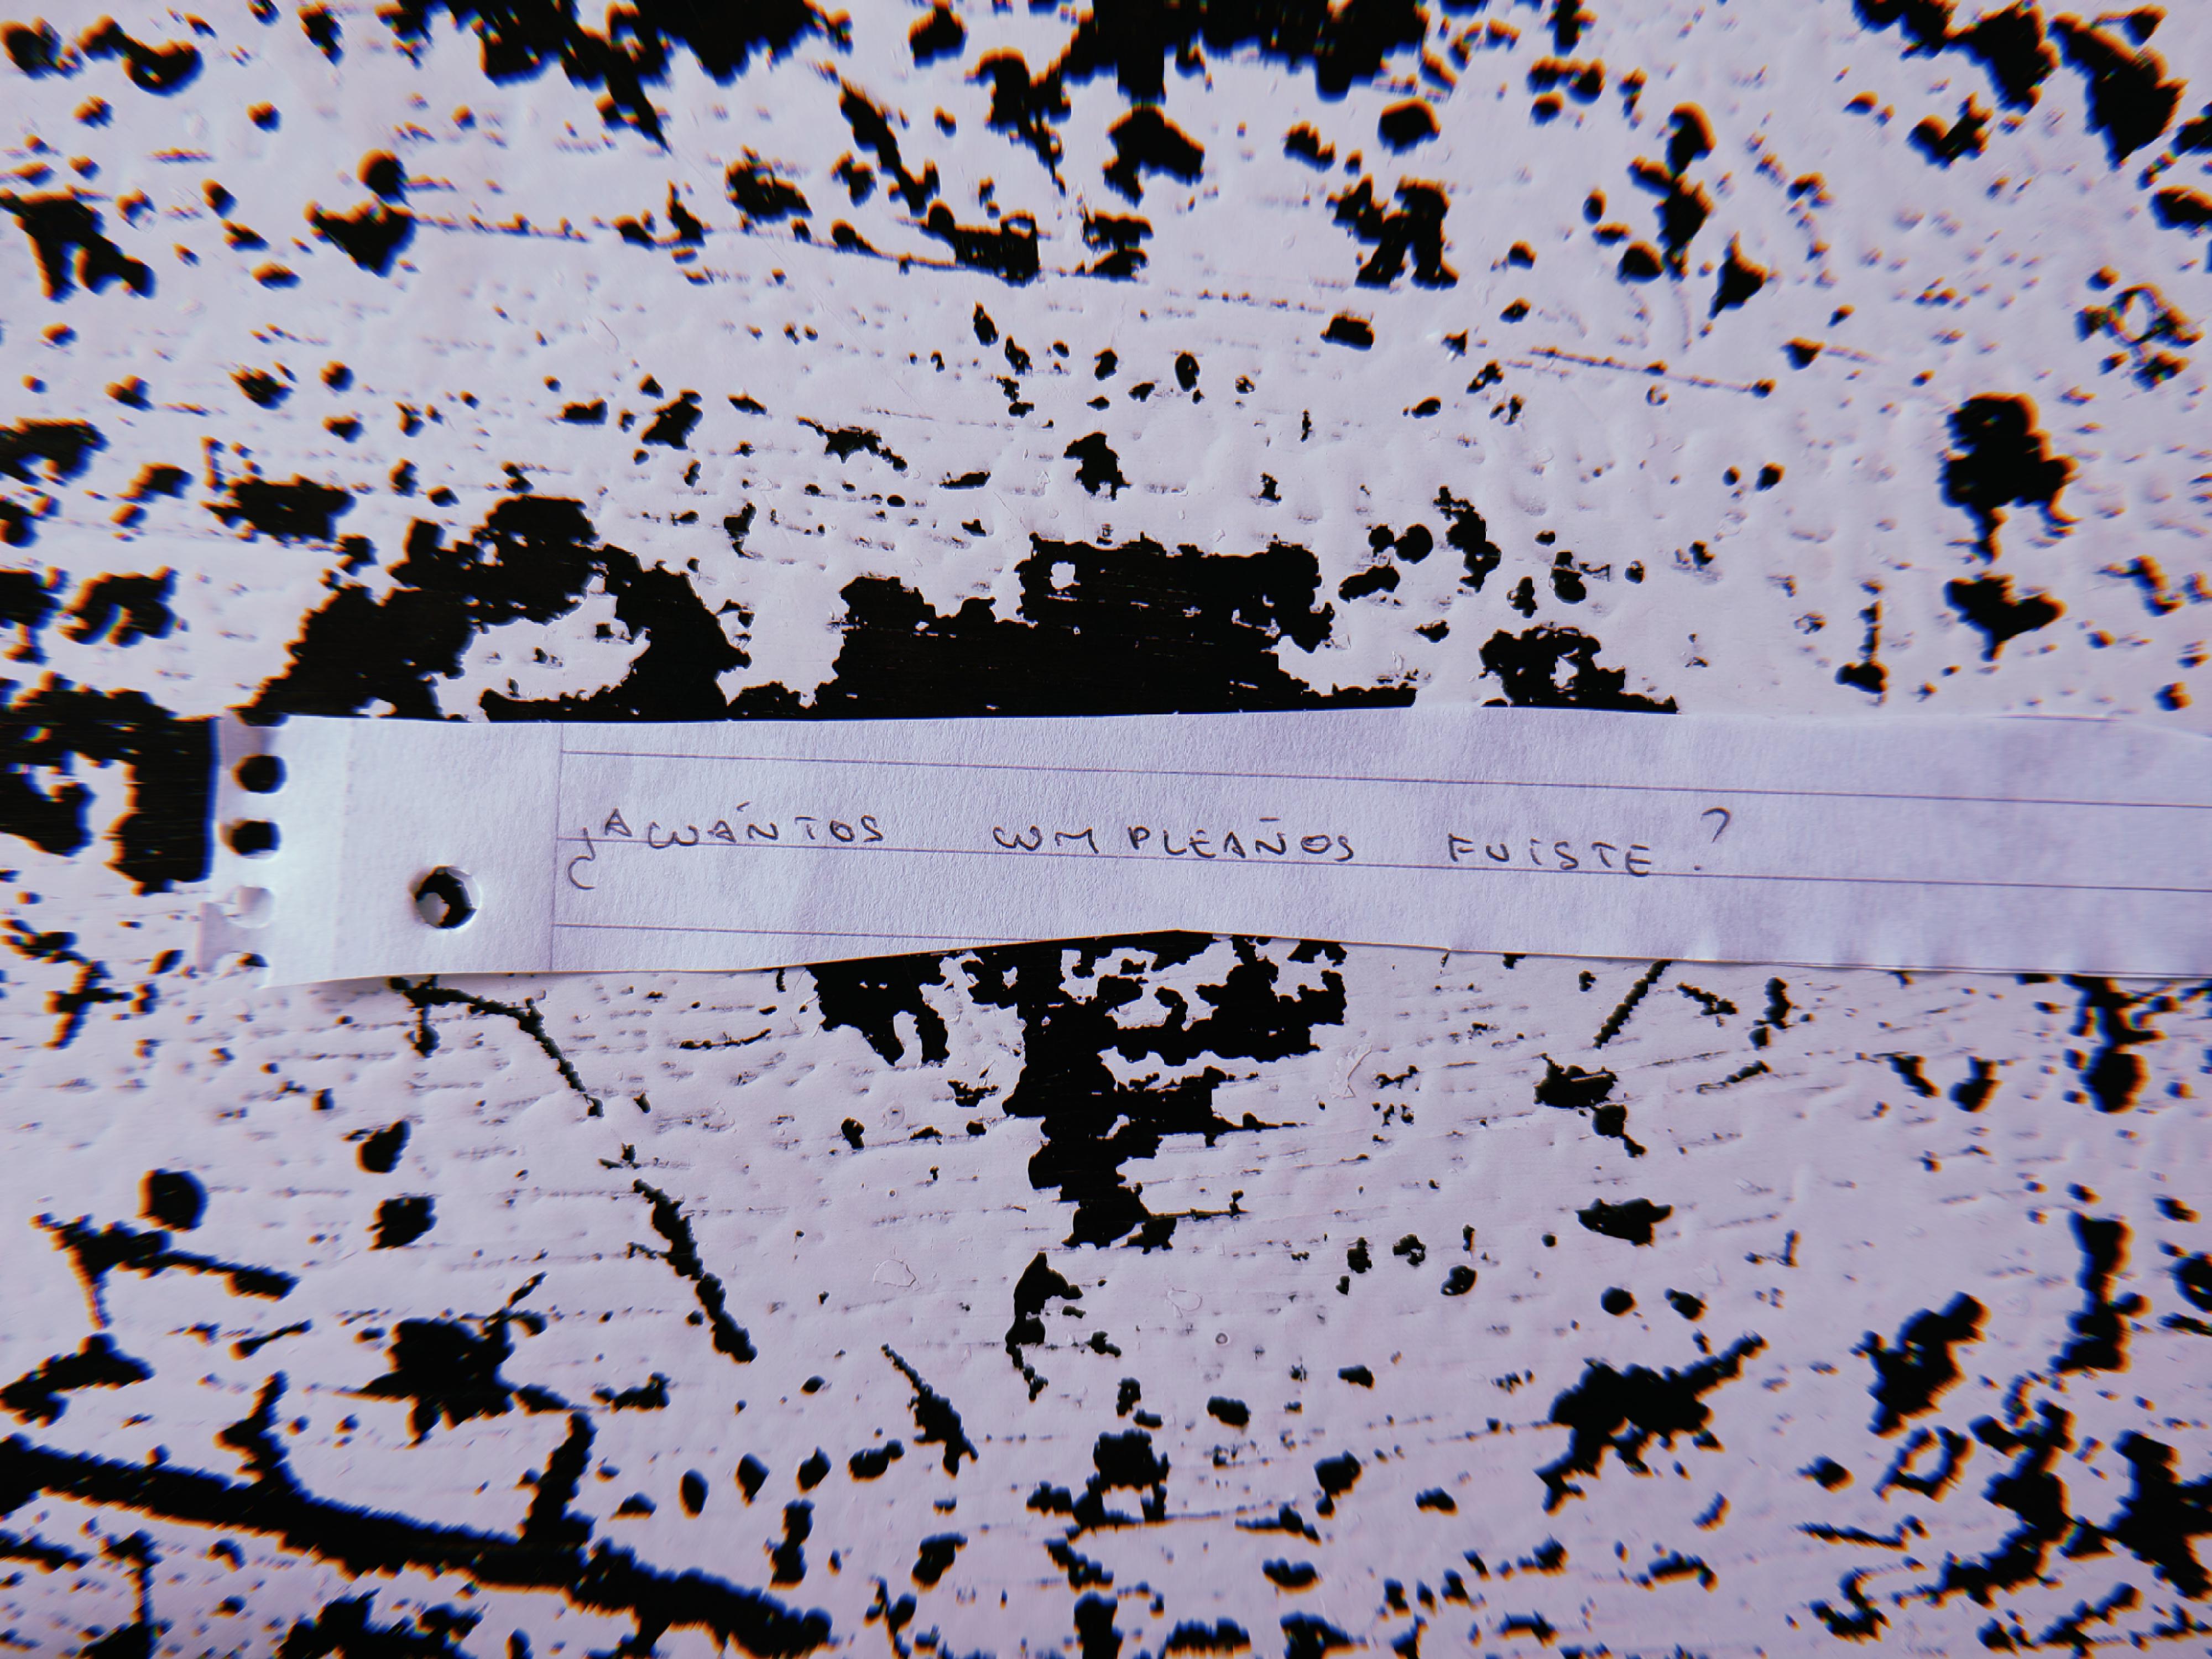 ¿A CUÁNTOS CUMPLEAÑOS FUISTE?